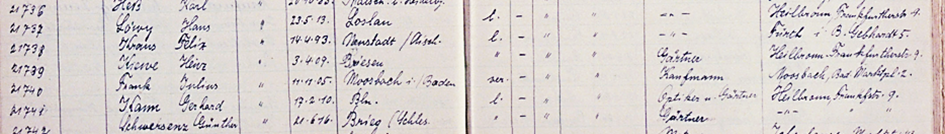 21736 Heß Karl
21737 Löwy Hans " 22.5.13. Loslau l. - " " -"- Heilbronn Frankfurterstr. 9.
21738 Kraus Felix " 14.4.93. Neustadt /Aisch. l. - " " -"- Fürth i. B. Gebhardt 5.
21739 Heinz " 3.4.09. Briesen " - " " Gärtner Heilbronn, Frankfurterstr. 9.
21740 Frank Julius " 11.1.05. Moosbach i./Baden ver. - " " Kaufmann Moosbach, Bad. Marktpl. 2.
21741 Kann Gerhard " 17.2.10. Bln. l. - " " Optiker u. Gärtner Heilbronn, Frankfstr. 9.
21742 Schwersenz Günther " 21.6.16. Brieg /Schles. " - " " Gärtner -"- -"-